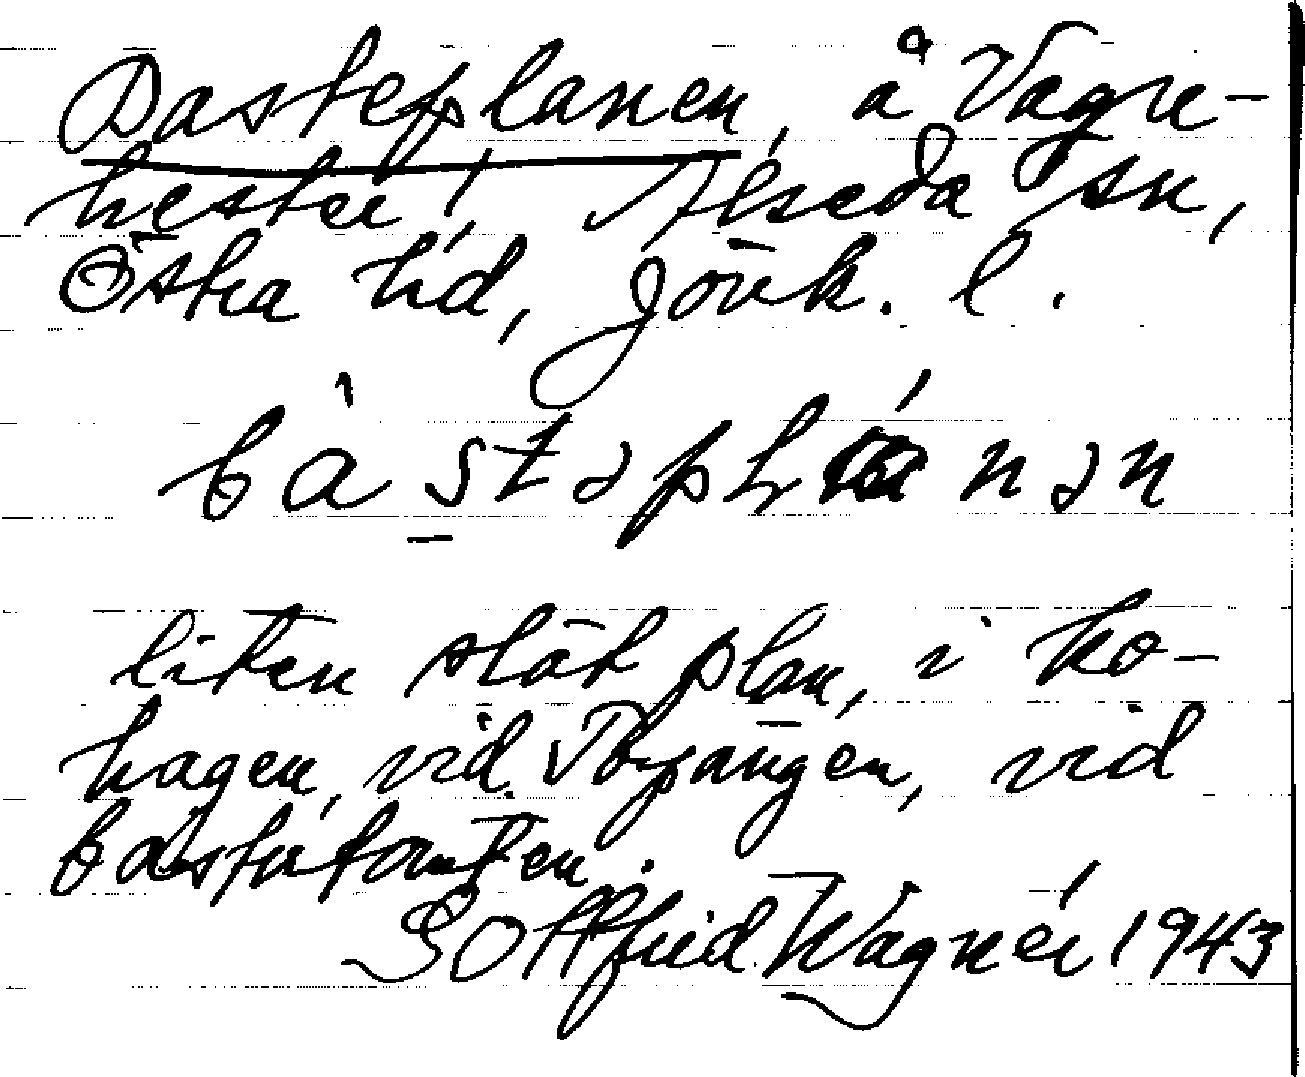 Basteplanen, å Vagne-
hester, Alseda sn,
Östra hd, Jönk. l.
bàstəplánən
liten slät plan, i ko-
hagen, vid Byängen, vid
bastutomten.
Gottfrid Wagnér 1943